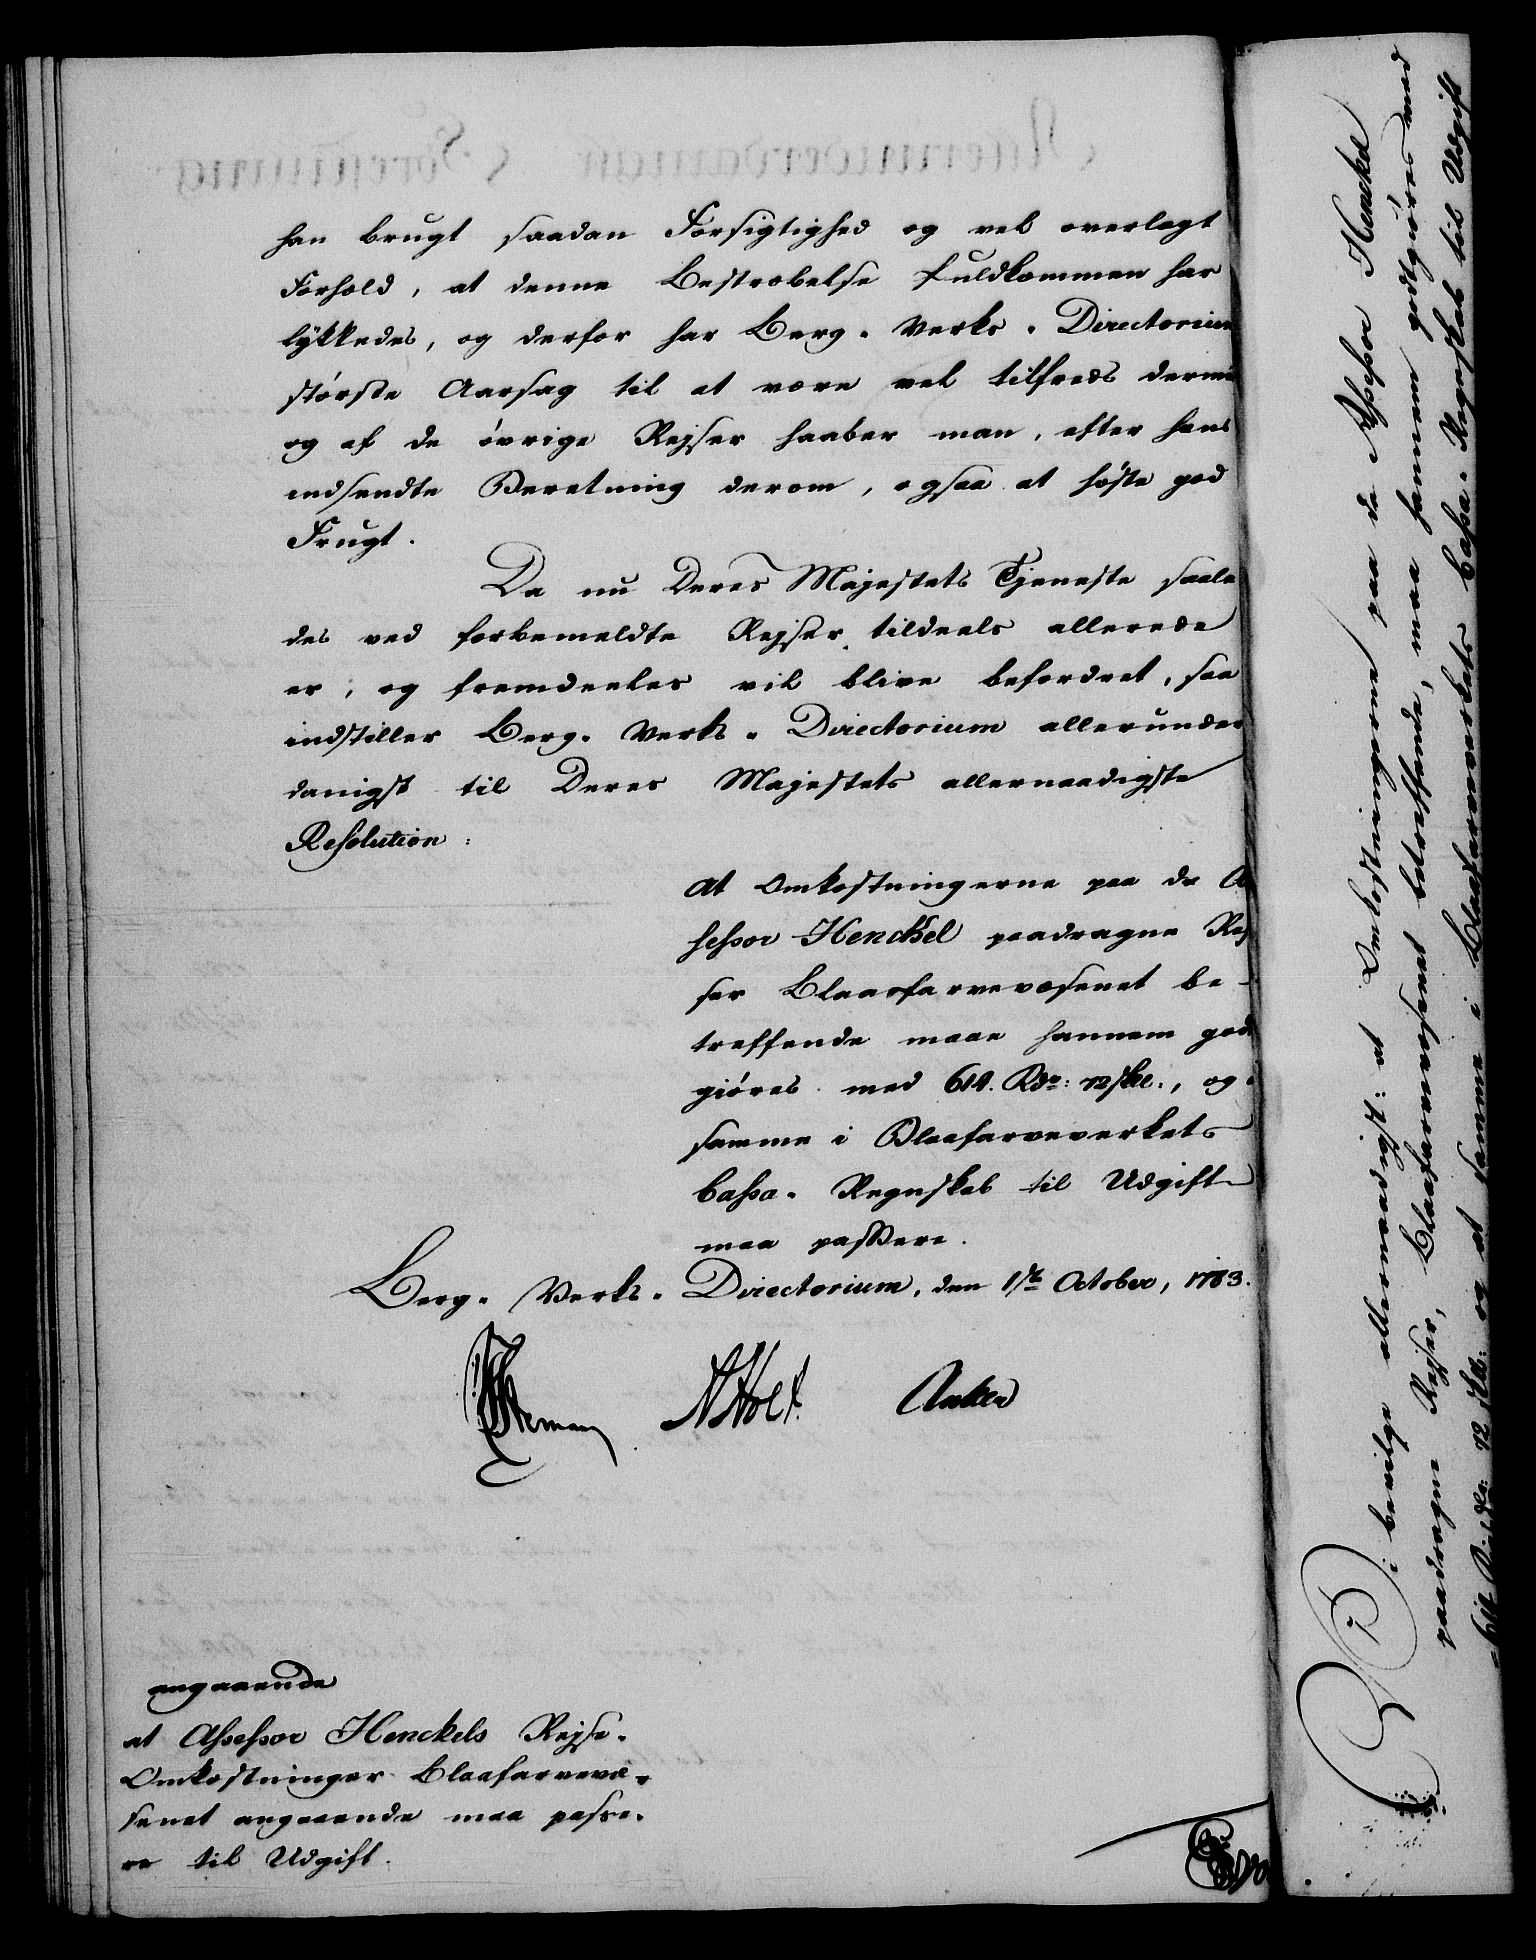 han brugt saadan Forsigtighed og vel overlagt
Forhold, at denne Bestræbelse fuldkommen har
lykkedes, og derfor har Berg-Verks-Directorium
største Aarsag til at være vel tilfreds dermed
og af de øvrige Rejser haaber man, efter hans
indsendte Beretning derom, ogsaa at høste god
Frugt.
Da nu Deres Majestets Tjeneste saale
des ved forbemeldte Rejser tildeels allerede
er, og fremdeeles vil blive befordret, saa
indstiller Berg-Verks-Directorium allerunder
danigst til Deres Majestets allernaadigste
Resolution:
At Omkostningerne paa de As
sessor Henckel paadragne Rej
ser Blaafarvevæsenet be-
treffende maae hannem god
giøres med 614 Rdr: 72 skl., og
samme i Blaafarveverkets
Cassa-Regnskab til Udgift
maa passere.
Berg-Verks-Directorium, den 1ste October, 1783.
N Holt Anker
angaaende
at Assessor Henckels Rejse-
Omkostninger Blaafarvevæ-
senet angaaende maa passe-
re til Udgift.
Vi bevilge allernaadigst: at Omkostningerne paa de Assessor Henckel
paadragne Rejser, Blaafarvevæsenet betreffende, maa hannem godtgiøres med
614 Rigsdlr: 72 skl: og at samme i Blaafarveverkets Cassa-Regnskab til Udgift